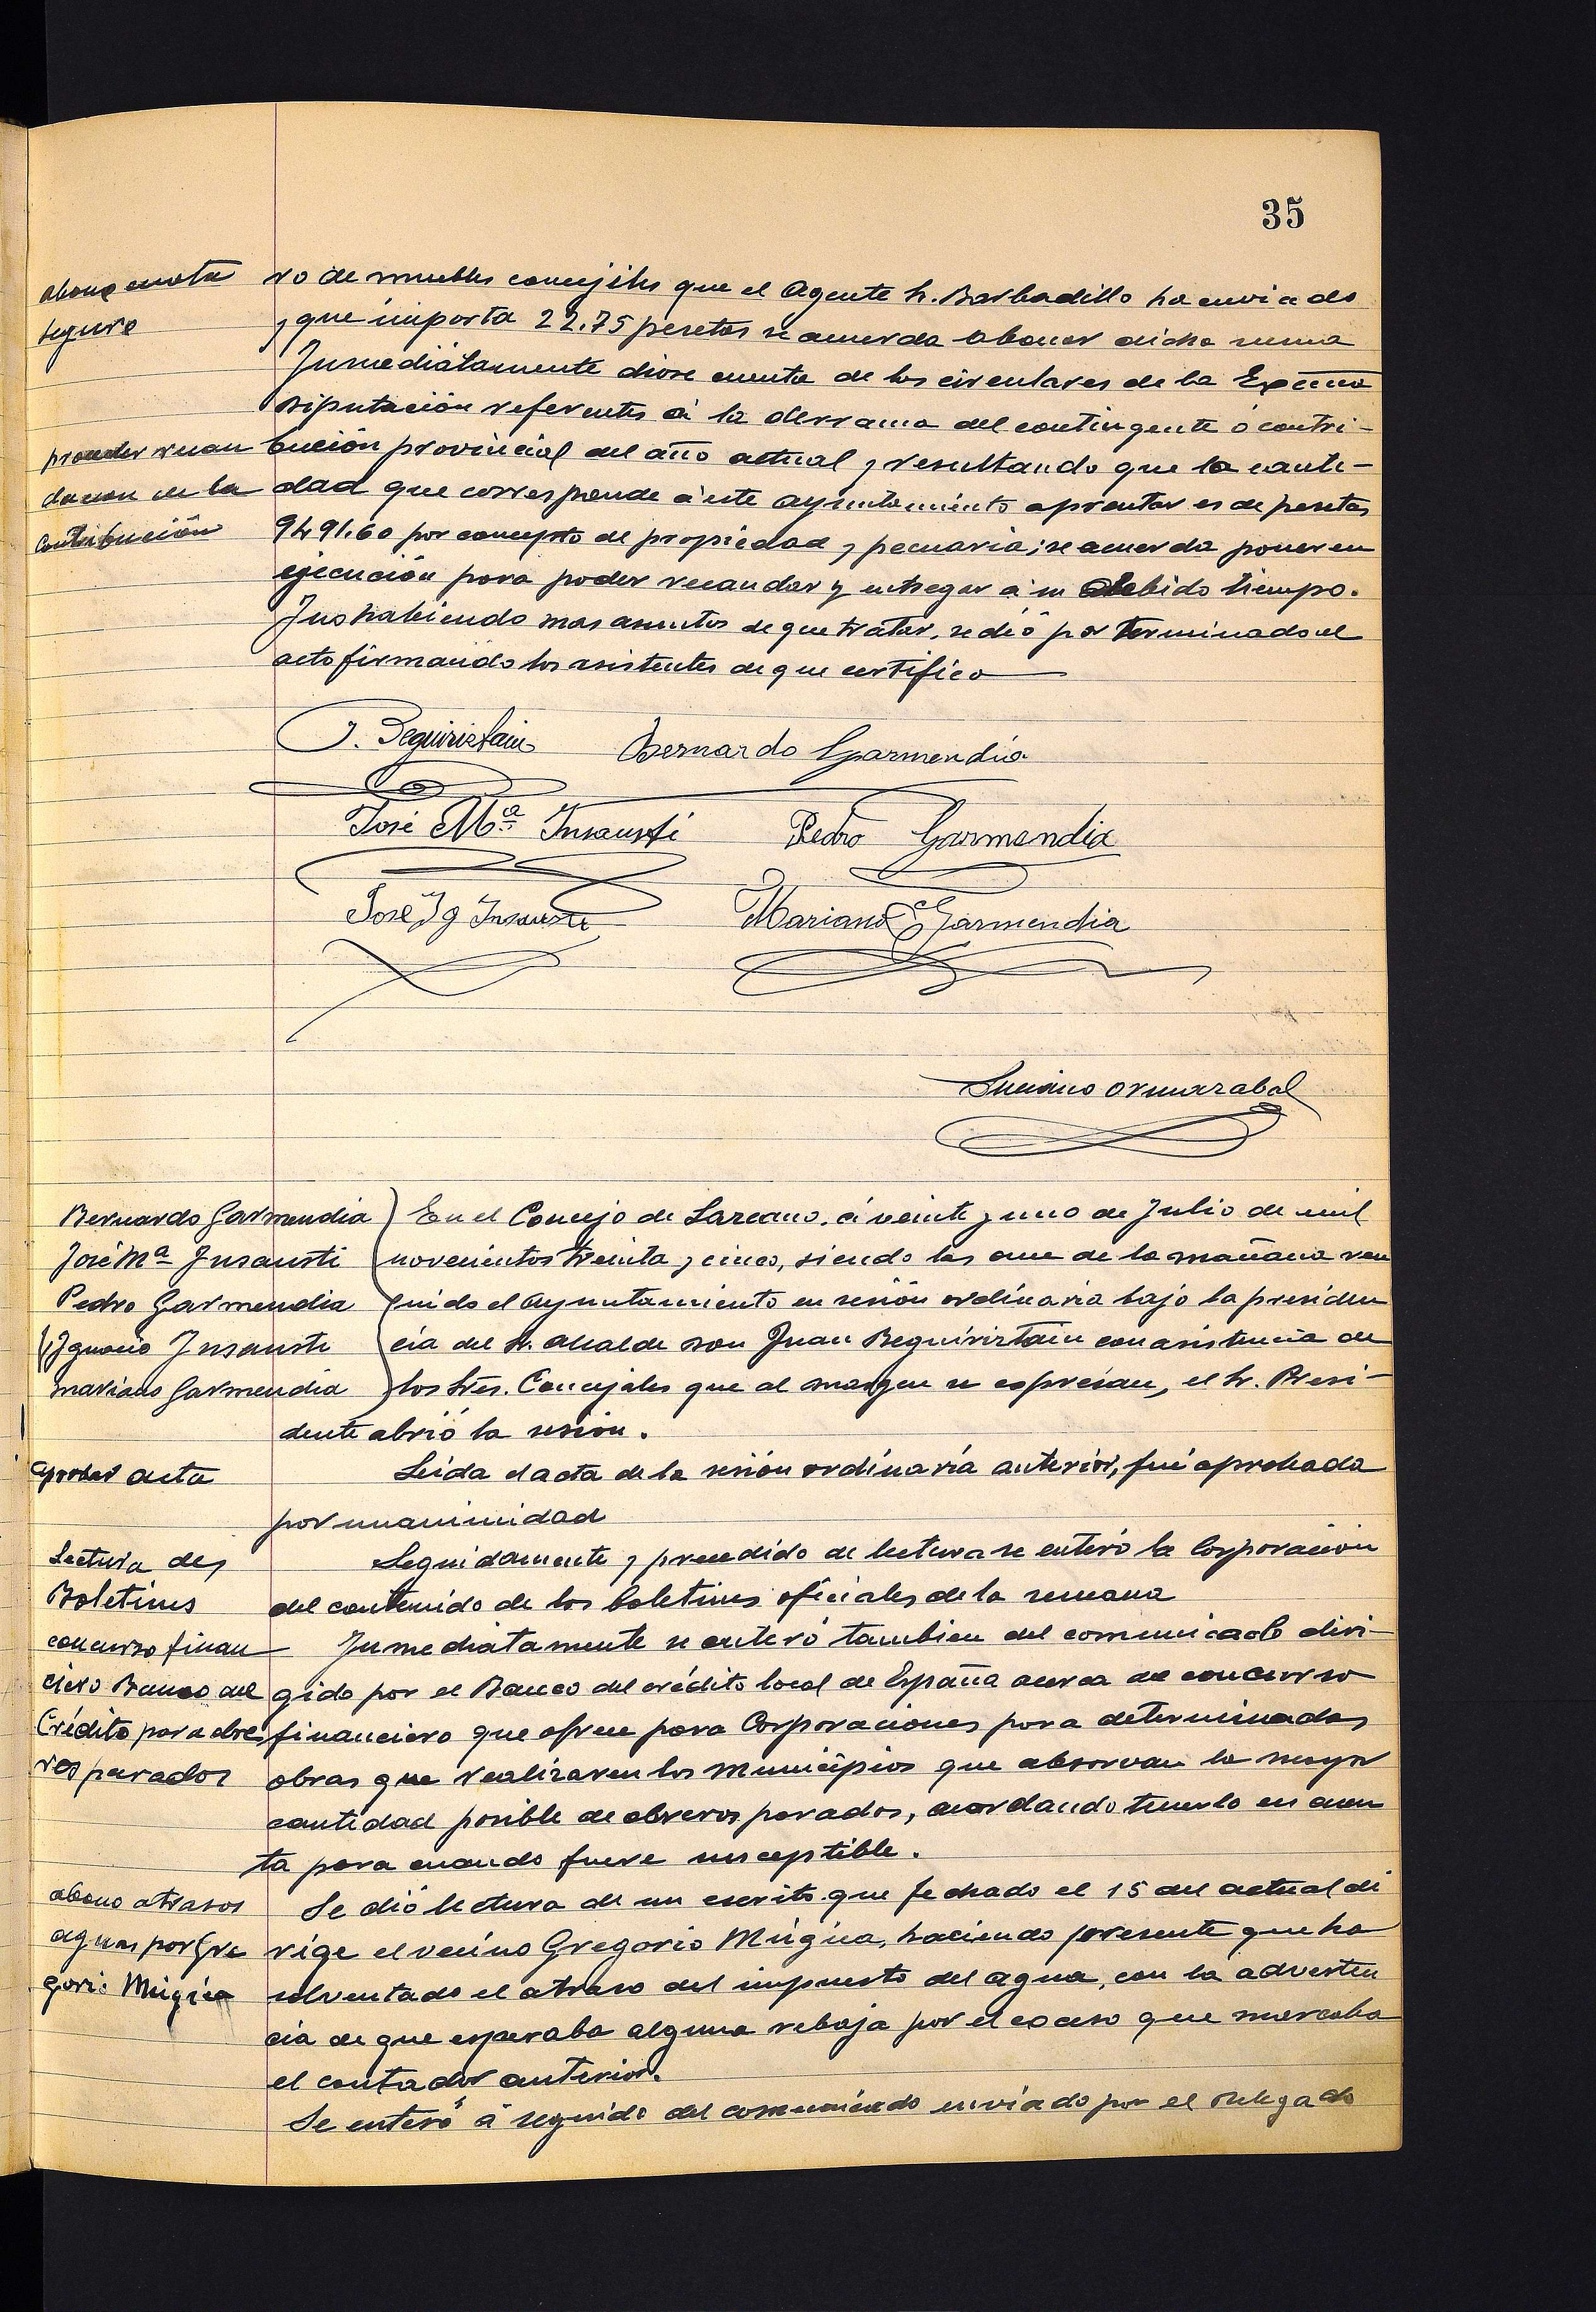 35
abono cuota
seguro
ro de muebles concejiles que el Agente Sr. Barbadillo ha enviado
y que importa 22.75 pesetas se acuerda abonar dicha suma
Inmediatamente diose cuenta de las circulares de la Excma
Diputación referentes á la derrama del contingente ó contri-
proceder recau
dacion de la
contribución
bución provincial del año actual y resultando que la canti-
dad que corresponde á este ayuntamiento aprontar es de pesetas
9491.60 por concepto de propiedad y pecuaria; se acuerda poner en
ejecución para poder recaudar y entregar á su debido tiempo.
Y no habiendo mas asuntos de que tratar, se dió por terminado el
acto firmando los asistentes de que certifico
J. Beguiristain Bernardo Garmendia
José Mª Insausti Pedro Garmendia
José Ig Insausti Mariano Garmendia
Luciano Ormazabal
Bernardo Garmendia
José Mª Insausti
Pedro Garmendia
Ignacio Insausti
Mariano Garmendia
En el Concejo de Lazcano, á veinte y uno de Julio de mil
novecientos treinta y cinco, siendo las once de la mañana reu
nido el Ayuntamiento en sesión ordinaria bajo la presiden
cia del Sr. alcalde Don Juan Beguiristain con asistencia de
los Sres. Concejales que al margen se expresan, el Sr. Presi-
dente abrió la sesión.
aprobar acta
Leida el acta de la sesión ordinaria anterior, fué aprobada
por unanimidad
Lectura de
Boletines
Seguidamente y precedido de lectura se enteró la Corporación
del contenido de los boletines oficiales de la semana
concurso finan
ciero Banco del
Crédito para obre
ros parados
Inmediatamente se enteró tambien del comunicado diri-
gido por el Banco del crédito local de España acerca del concurso
financiero que ofrece para Corporaciones para determinadas
obras que realizaren los Municipios que absorvan la mayor
cantidad posible de obreros parados, acordando tenerlo en cuen
ta para cuando fuere susceptible.
abono atrasos
aguas por Gre
gorio Múgica
Se dió lectura de un escrito que fechado el 15 del actual di
rige el vecino Gregorio Múgica, haciendo presente que ha
solventado el atraso del impuesto del agua, con la adverten
cia de que esperaba alguna rebaja por el exceso que marcaba
el contador anterior.
Se enteró á seguido del comunicado enviado por el Delegado